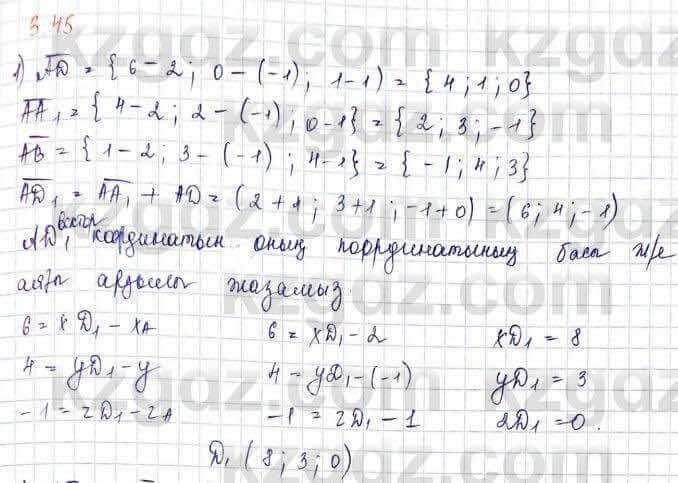 3 45
1) AD = { 6 – 2 ; 0 – (–1) ; 1–1 ) = { 4 ; 1 ; 0}
AA₁ = { 4 – 2 ; 2 – (–1) ; 0–1} = { 2 ; 3 ; –1 }
AB = { 1 – 2 ; 3 – (–1) ; 4–1} = { –1 ; 4 ; 3}
AD₁ = AA₁ + AD = (2 + 1 ; 3+1 ; –1+0) = (6 ; 4 ; –1)
AD₁ вектор координатын оның координатының басы ж/е
аяғы арқылы жазамыз.
6 = xD₁ – xA 6 = xD₁ – 2 xD₁ = 8
4 = yD₁ – y 4 = yD₁ – (–1) yD₁ = 3
–1 = zD₁ – zA –1 = zD₁ – 1 zD₁ = 0.
D₁ ( 8 ; 3 ; 0)
kzgdz.com